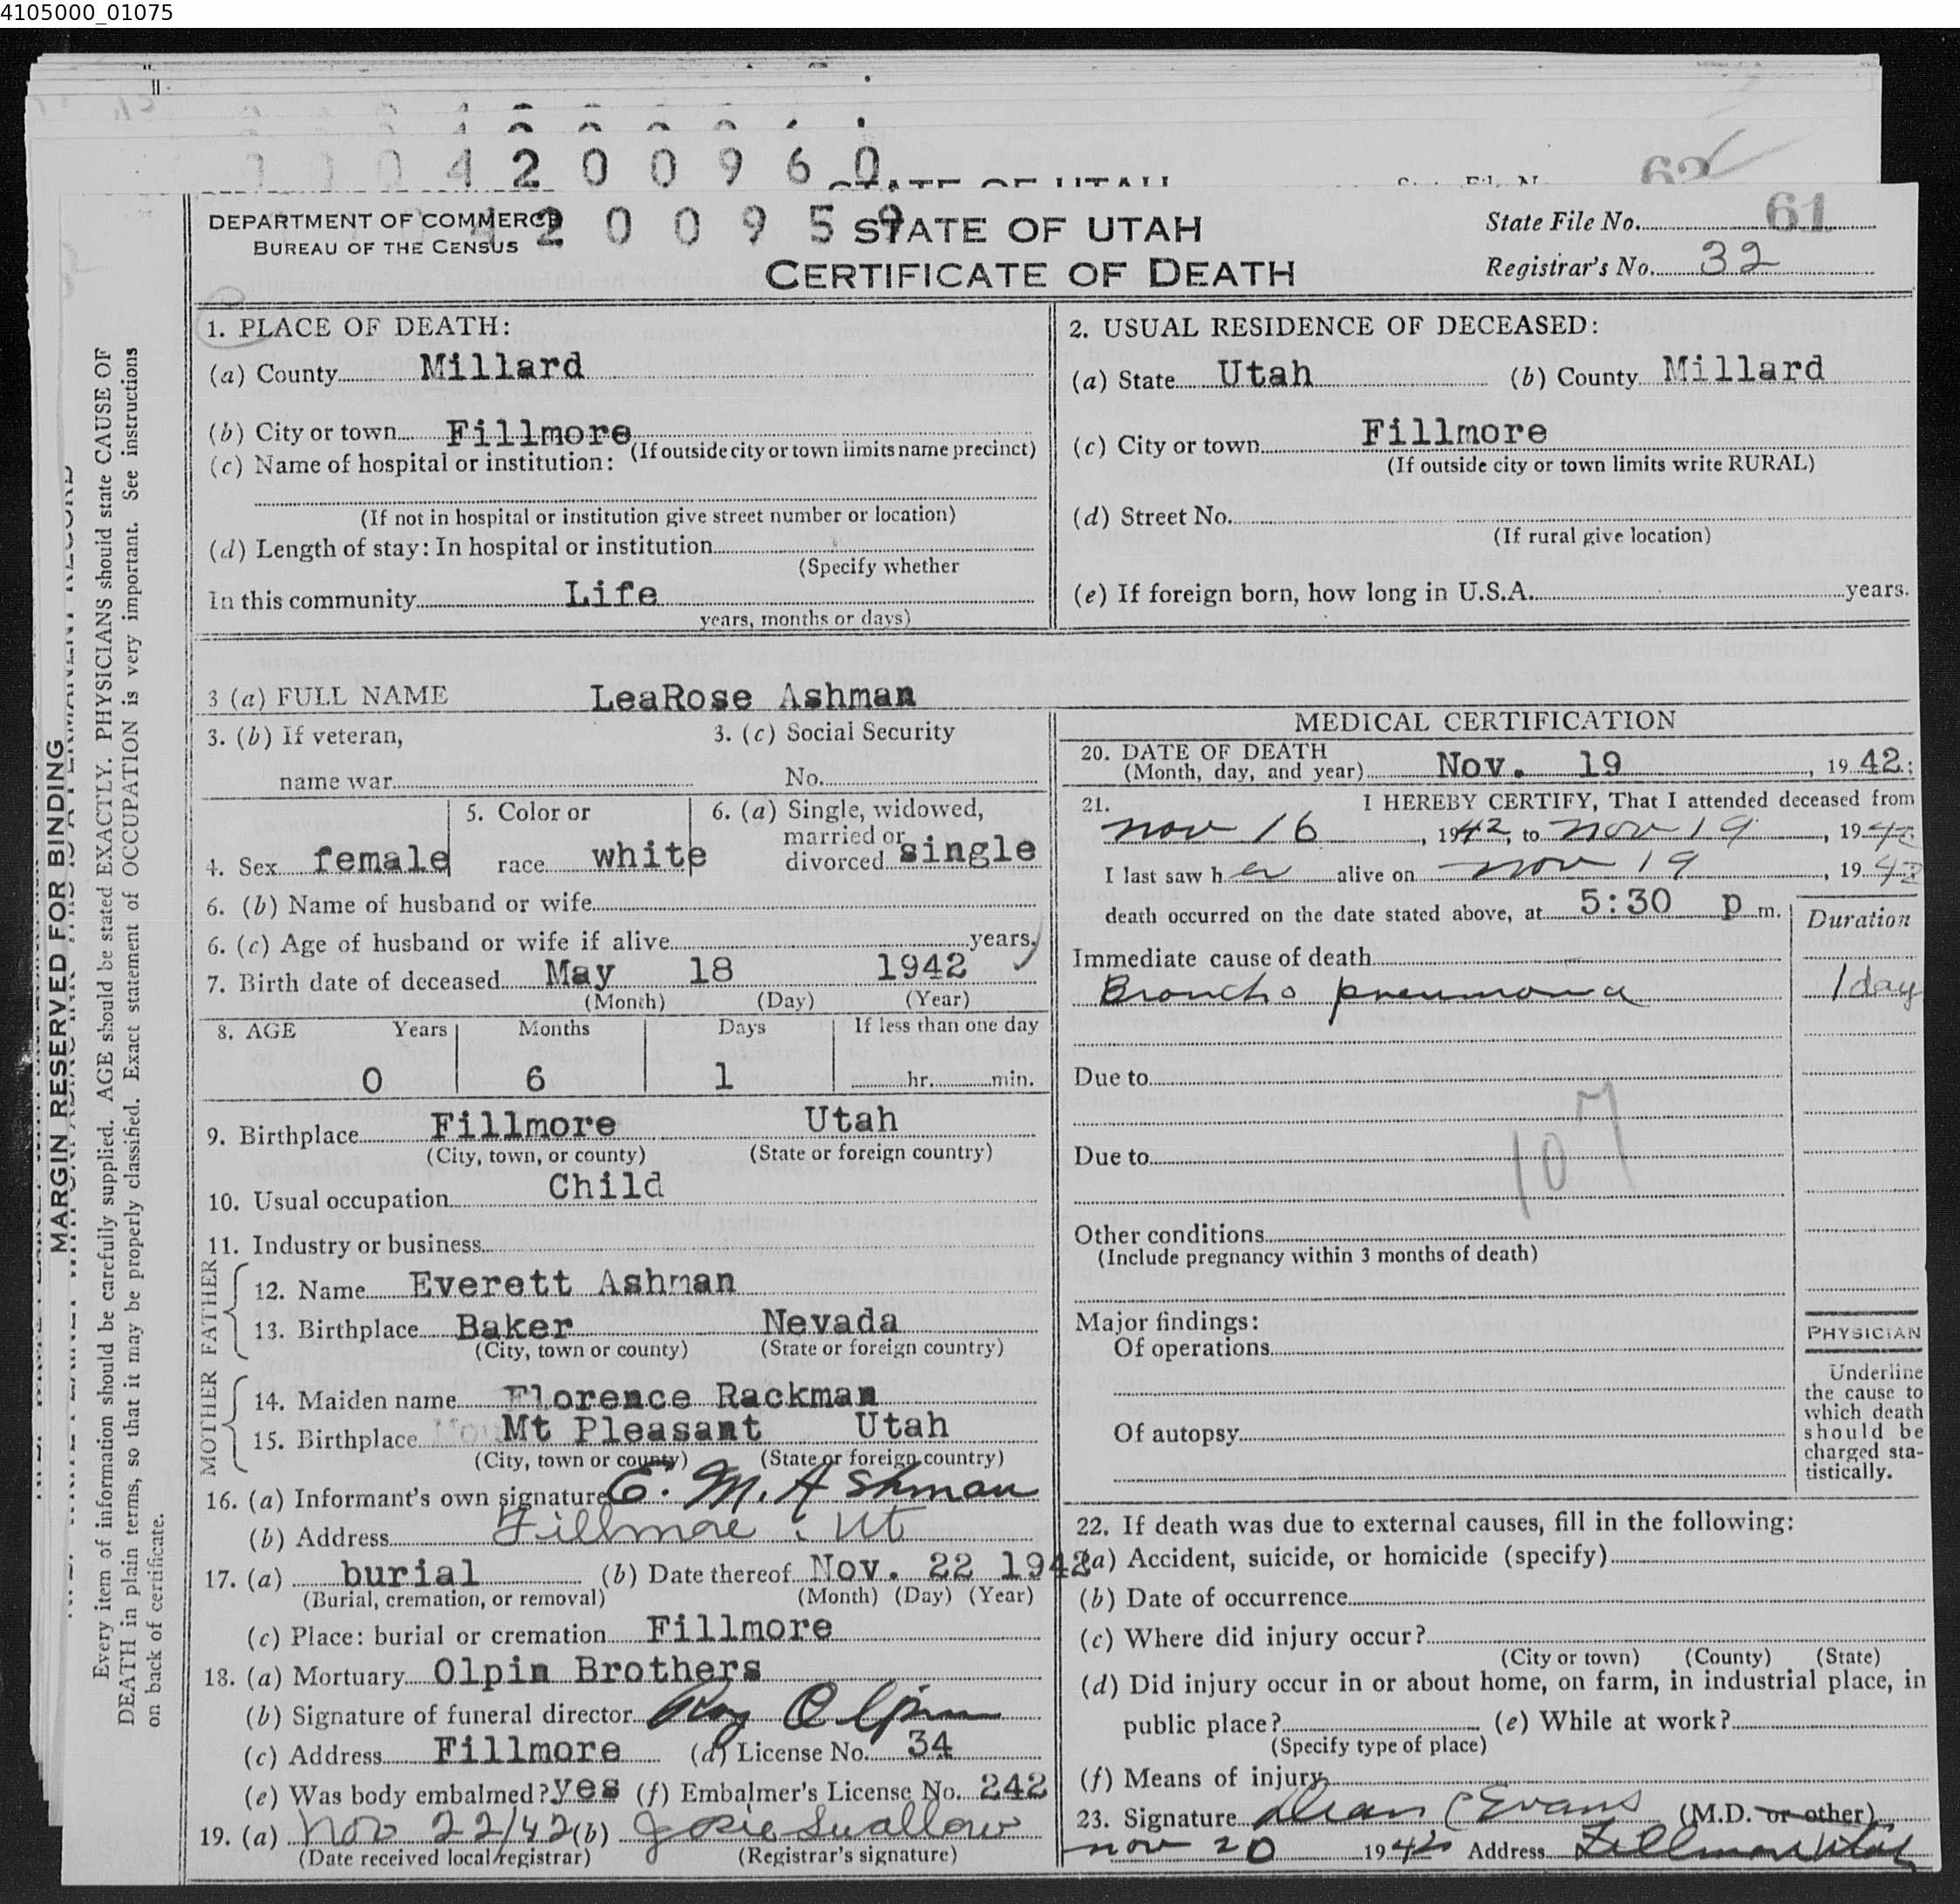 4105000_01075
4 2 0 0 9 6 0
62
DEPARTMENT OF COMMERCE
BUREAU OF THE CENSUS
4 2 0 0 9 5 9
STATE OF UTAH
CERTIFICATE OF DEATH
State File No. 61
Registrar's No. 32
MARGIN RESERVED FOR BINDING
Every item of information should be carefully supplied. AGE should be stated EXACTLY. PHYSICIANS should state CAUSE OF
DEATH in plain terms, so that it may be properly classified. Exact statement of OCCUPATION is very important. See instructions
on back of certificate.
1. PLACE OF DEATH:
(a) County Millard
(b) City or town Fillmore
(If outside city or town limits name precinct)
(c) Name of hospital or institution:
(If not in hospital or institution give street number or location)
(d) Length of stay: In hospital or institution
(Specify whether
In this community Life
years, months or days)
2. USUAL RESIDENCE OF DECEASED:
(a) State Utah (b) County Millard
(c) City or town Fillmore
(If outside city or town limits write RURAL)
(d) Street No.
(If rural give location)
(e) If foreign born, how long in U.S.A. years.
3 (a) FULL NAME LeaRose Ashman
3. (b) If veteran, 3. (c) Social Security
name war No.
4. Sex female 5. Color or race white 6. (a) Single, widowed, married or divorced single
6. (b) Name of husband or wife
6. (c) Age of husband or wife if alive years.
7. Birth date of deceased May 18 1942
(Month) (Day) (Year)
8. AGE Years Months Days If less than one day
0 6 1 hr. min.
9. Birthplace Fillmore Utah
(City, town, or county) (State or foreign country)
10. Usual occupation Child
11. Industry or business
FATHER
12. Name Everett Ashman
13. Birthplace Baker Nevada
(City, town or county) (State or foreign country)
MOTHER
14. Maiden name Florence Rackman
15. Birthplace Mt Pleasant Utah
(City, town or county) (State or foreign country)
16. (a) Informant's own signature E. M. Ashman
(b) Address Fillmore, Ut
17. (a) burial (b) Date thereof Nov. 22 1942
(Burial, cremation, or removal) (Month) (Day) (Year)
(c) Place: burial or cremation Fillmore
18. (a) Mortuary Olpin Brothers
(b) Signature of funeral director Roy Olpin
(c) Address Fillmore (d) License No. 34
(e) Was body embalmed? yes (f) Embalmer's License No. 242
19. (a) Nov 22/42 (b) Josie Swallow
(Date received local registrar) (Registrar's signature)
MEDICAL CERTIFICATION
20. DATE OF DEATH
(Month, day, and year) Nov. 19, 1942;
21. I HEREBY CERTIFY, That I attended deceased from
nov 16, 1942, to nov 19, 1942
I last saw her alive on nov 19, 1942
death occurred on the date stated above, at 5:30 p m.
Duration
Immediate cause of death
Broncho pneumonia 1 day
Due to
107
Due to
Other conditions
(Include pregnancy within 3 months of death)
Major findings:
Of operations
Of autopsy
PHYSICIAN
Underline
the cause to
which death
should be
charged sta-
tistically.
22. If death was due to external causes, fill in the following:
(a) Accident, suicide, or homicide (specify)
(b) Date of occurrence
(c) Where did injury occur?
(City or town) (County) (State)
(d) Did injury occur in or about home, on farm, in industrial place, in
public place? (e) While at work?
(Specify type of place)
(f) Means of injury
23. Signature Dean C Evans (M.D. or other)
nov 20 1942 Address Fillmore Utah